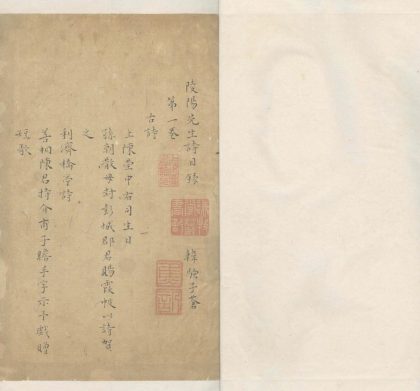 陵陽先生詩目錄 韓駒子蒼
第一卷
古詩
上陳瑩中右司生日
孫朝散母封彭城郡君賜霞帔以詩賀
之
利濟橋堂詩
善相陳君持介甫子瞻手字示予戲贈
短歌